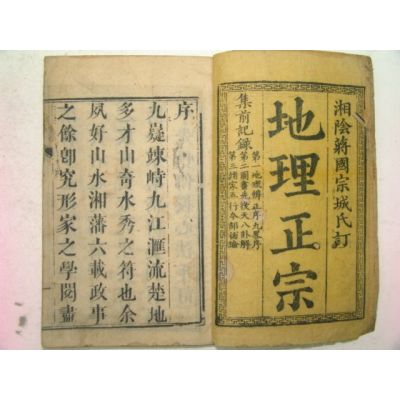 湘陰蔣國宗城氏訂
地理正宗
集前記錄
第一地理辨正序九畧序
第二圖書先後天八卦解
第三諸家五行令部總論
序
九嶷竦峙九江滙流楚地
多才山奇水秀之符也余
夙好山水湘藩六載政事
之餘卽究形家之學閱盡